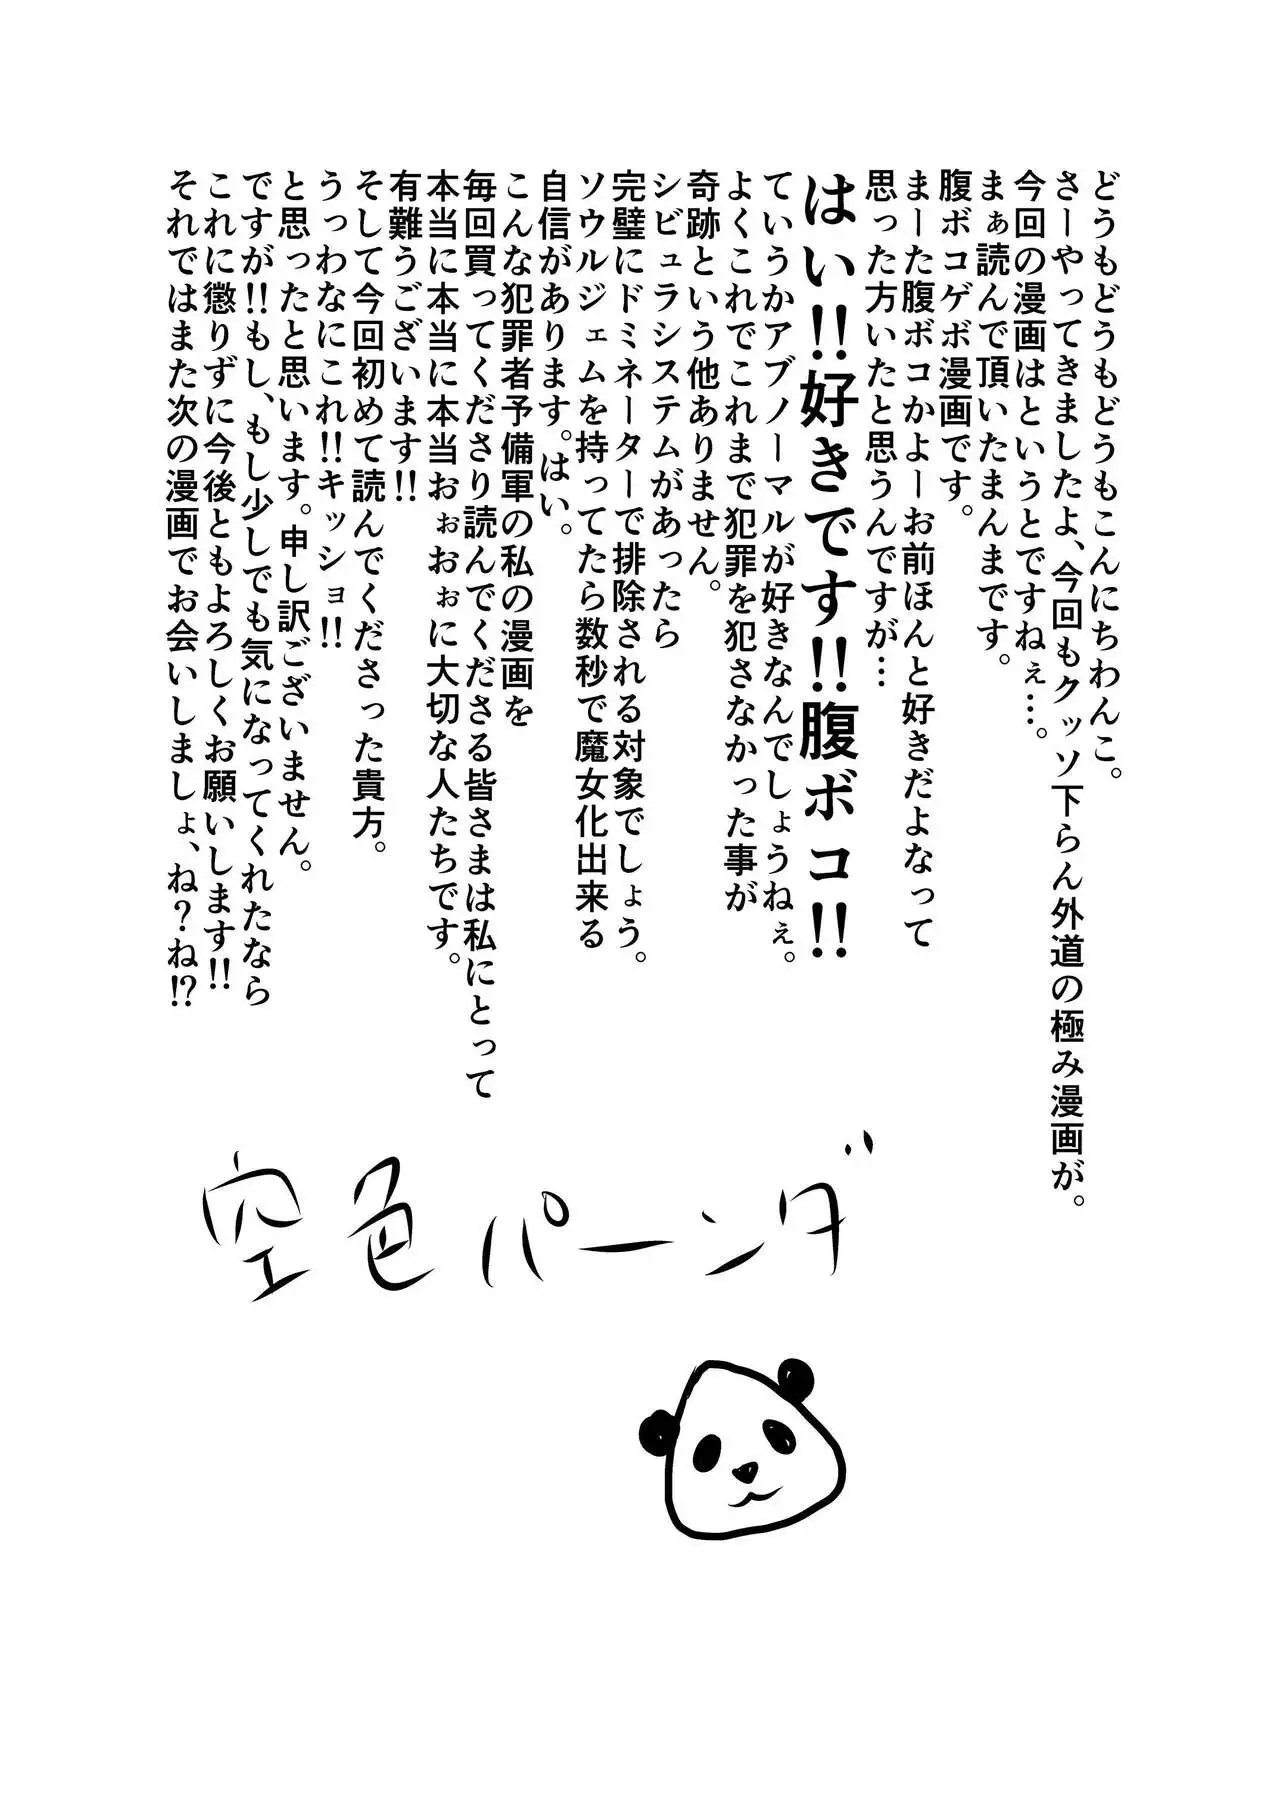 どうもどうもどうもこんにちわんこ。
さーやってきましたよ、今回もクッソ下らん外道の極み漫画が。
今回の漫画はというとですねぇ…。
まぁ読んで頂いたまんまです。
腹ボコゲボ漫画です。
まーた腹ボコかよーお前ほんと好きだよなって
思った方いたと思うんですが…
はい!!好きです!!腹ボコ!!
ていうかアブノーマルが好きなんでしょうねぇ。
よくこれでこれまで犯罪を犯さなかった事が
奇跡という他ありません。
シビュラシステムがあったら
完璧にドミネーターで排除される対象でしょう。
ソウルジェムを持ってたら数秒で魔女化出来る
自信があります。はい。
こんな犯罪者予備軍の私の漫画を
毎回買ってくださり読んでくださる皆さまは私にとって
本当に本当に本当おぉおぉに大切な人たちです。
有難うございます!!
そして今回初めて読んでくださった貴方。
うっわなにこれ!!キッショ!!
と思ったと思います。申し訳ございません。
ですが!!もし、もし少しでも気になってくれたなら
これに懲りずに今後ともよろしくお願いします!!
それではまた次の漫画でお会いしましょ、ね?ね!?
空色パーンダ